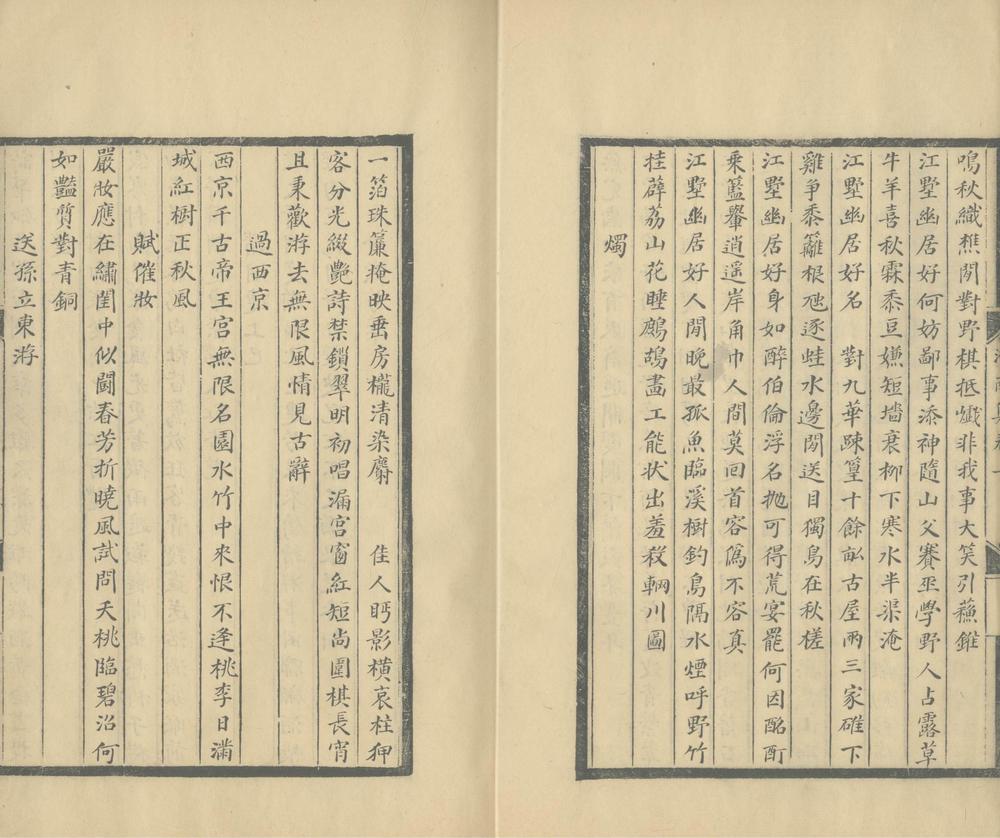 鳴秋織樵閒對野棋抵巇非我事大笑引蘓錐
江墅幽居好何妨鄙事添神隨山父賽巫學野人占露草
牛羊喜秋霖黍豆嫌短墻衰柳下寒水半渠淹
江墅幽居好名　對九華疎篁十餘畝古屋兩三家碓下
雞爭黍籬根虺逐蛙水邊閒送目獨鳥在秋槎
江墅幽居好身如醉伯倫浮名抛可得荒宴罷何因酩酊
乘籃轝逍遥岸角巾人間莫回首容僞不容真
江墅幽居好人閒晚最孤魚臨溪樹釣鳥隔水煙呼野竹
挂薜荔山花睡鷓鴣畵工能狀出羞殺輞川圖
燭
一箔珠簾掩映垂房櫳清染麝　　佳人眄影橫哀柱狎
客分光綴艷詩禁鎖翠明初唱漏宫窗紅短尚圍棋長宵
且秉歡游去無限風情見古辭
過西京
西京千古帝王宫無限名園水竹中來恨不逢桃李日滿
城紅樹正秋風
賦催妝
嚴妝應在繡閨中似鬭春芳折曉風試問夭桃臨碧沼何
如豔質對青銅
送孫立東游